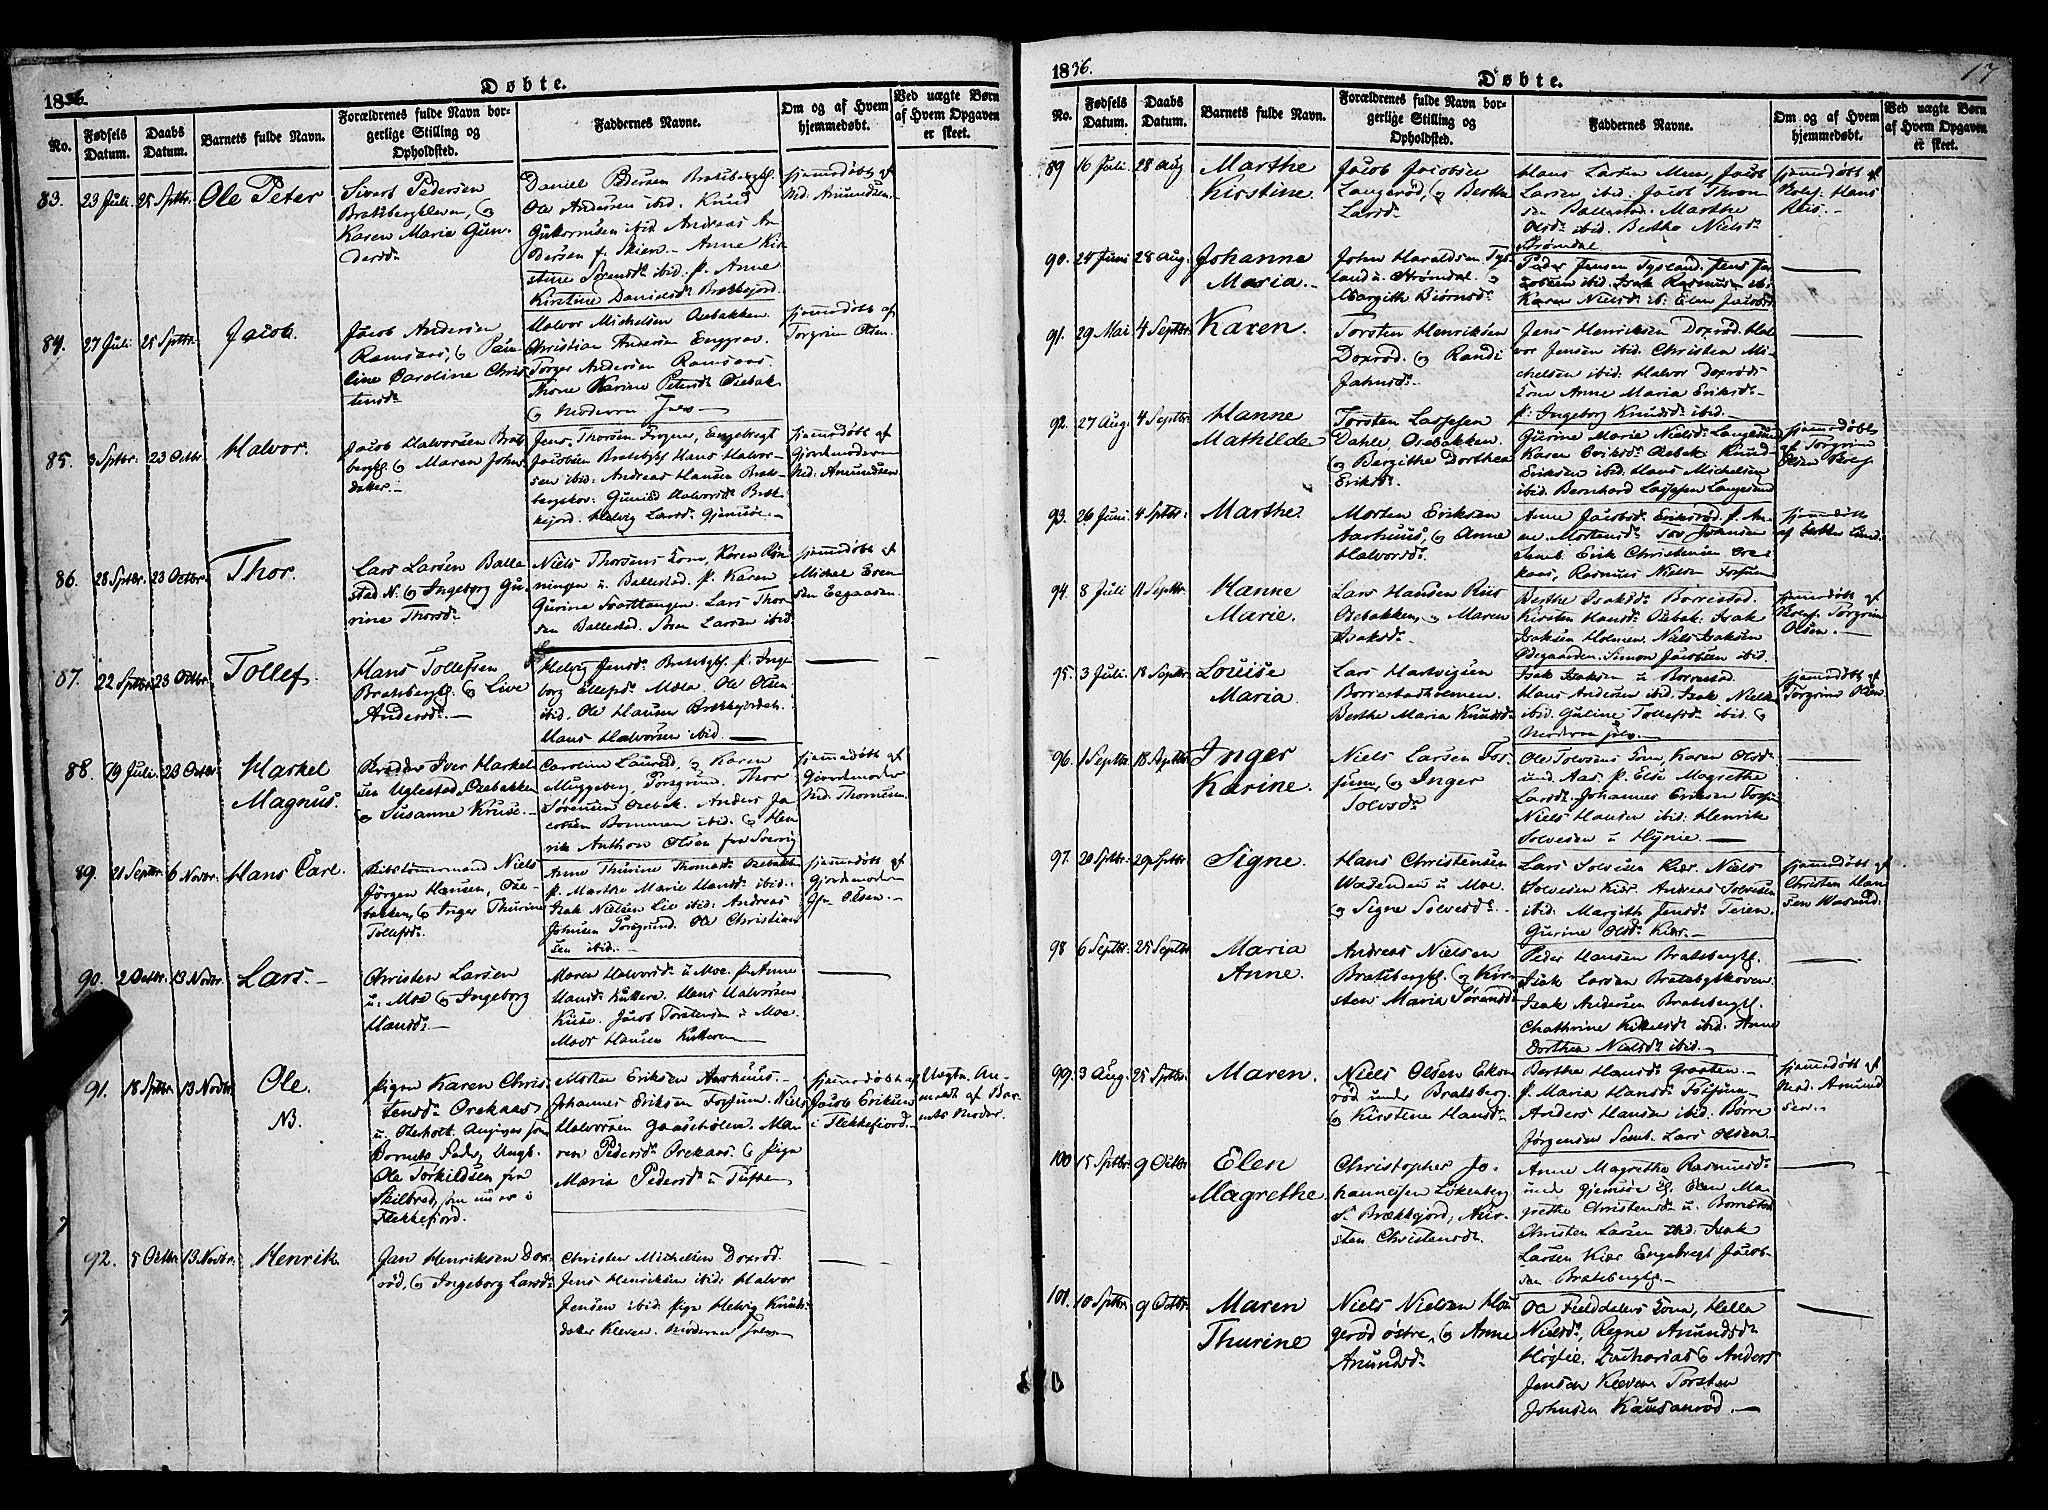 1836.
Døbte.
No.
Fødsels Datum.
Daabs Datum.
Barnets fulde Navn.
Forældrenes fulde Navn borgerlige Stilling og Opholdsted.
Faddernes Navne.
Om og af Hvem hjemmedøbt.
Ved uægte Børn af Hvem Opgaven er skeet.
83. 23 Juli. 25 Sptbr. Ole Peter
Sivert Pedersen
Bratsbergkleven, og
Karen Maria Gun-
dersd.
Daniel Pedersen Bratsbergkl.
Ole Andersen ibid. Knud
ibid Andreas An-
dersen f. Skien. Anne Kir-
stine Sørensd. ibid: p. Anne
Kirstine Danielsd. Brekkejord.
hjemmedøbt af
Md: Amundsen.
84. 27 Juli 25 Sptbr. Jacob.
Jacob Andersen
Ramsaas, og Pau-
line Caroline Chris-
tensd.
Halvor Michelsen Osebakken.
Christian Andersen Enggrav.
Torger Andersen Ramsaas
Thone Karine Petersd. Osebak.
og Moderen selv
hjemmedøbt af
Torgrim Olsen.
85. 3 Sptbr. 23 Octbr. Halvor.
Jacob Halvorsen Brats-
bergkl. og Maren Johns-
datter.
Jens Thorsen Frogner, Engebregt
Jacobsen Bratsbgkl. Hans Halvor-
sen ibid: Andreas Hansen Brats-
bergskov. Gunild Halvorsd. Brek-
kejord. Helvig Larsd. Gjemsøe.
hjemmedøbt af
Gjordmoderen
Md: Amundsen
86. 28 Sptbr. 23 Octbr. Thor.
Lars Larsen Balle-
stad N. og Ingeborg Gu-
rine Thorsd.
Niels Thorsens Kone, Karen Røn-
ningen u. Ballestad. p. Karen
Gurine Svarttangen. Lars Thor-
sen Ballestad. Søren Larsen ibid.
hjemmedøbt af
Michel Even-
sen Eegaasen.
87. 22 Sptbr. 23 Octbr. Tollef.
Hans Tollefsen
Bratsbergkl. og Live
Andersd.
Helvig Jensd. Bratsbgkl. p. Inge-
borg Ellefsd. Mæla. Ole Olsen
ibid. Ole Hansen Brækkejordet.
Hans Halvorsen ibid.
88. 19 Juli. 23 Octbr. Harkel
Magnus.
Iver Harkel-
sen Uglestad, Osebakken
og Susanne Kruse.
Caroline Laurød, og Karen
Muggeberg, Porsgrund. Thor
Sørensen Osebak. Anders Ja-
cobsen Bommen ibid. og Hen-
rik Anthon Olsen fra Sverrig
hjemmedøbt af
Gjordmoder
Md. Thomesen.
89. 21 Septbr. 6 Novbr. Hans Carl.
Skibstømmermand Niels
Jørgen Hansen, Ose-
bakken, og Inger Thurine
Tollefsd.
Anne Thurine Thomasd. Osebakk.
p. Marthe Marie Hansd. ibid.
Isak Nielsen Lie ibid: Andreas
Johnsen Porsgrund. Ole Christian-
sen ibid.
hjemmedøbt af
Gjordmoder
Olsen.
90. 2 Octbr. 13 Novbr. Lars.
Christen Larsen
u. Moe og Ingeborg
Hansd.
Maren Halvorsd. u Moe. p. Anne
Hansd. Hans Halvorsen
Kiise. Jacob Torstensen u Moe.
Mads Hansen
91. 18 Sptbr. 13 Novbr. Ole.
NB.
Pigen Karen Chris-
tensd. Orekaas
u. Osterholt. Angives som
Barnets Fader, Ungk.
Ole Torkildsen fra
Skilbred, som nu er i
Flekkefjord.
Morten Eriksen Aarhuus.
Johannes Eriksen Fossum. Niels
Halvorsen Gaaseholmen. Ma-
ren Pedersd. Orekaas. og Pige
Maria Pedersd. u Tufte
hjemmedøbt af
Jacob Eriksen
i Flekkefjord.
Uægte. An-
meldt af Bar-
nets Moder.
92. 5 Octbr. 13 Novbr. Henrik.
Jan Henriksen Dox-
rød, og Ingeborg Larsd.
Christen Michelsen Doxrød.
Jens Henriksen ibid: Halvor
Jensen ibid. Pige Helvig Knuds-
datter Kleven. Moderen selv
1836.
Døbte.
17
No.
Fødsels Datum.
Daabs Datum.
Barnets fulde Navn.
Forældrenes fulde Navn borgerlige Stilling og Opholdsted.
Faddernes Navne.
Om og af Hvem hjemmedøbt.
Ved uægte Børn af Hvem Opgaven er skeet.
89 16 Juli 28 Aug Marthe
Kirstine.
Jacob Jacobsen
Langerød, og Berthe
Larsd.
Hans Larsen Meen, Jacob
Larsen ibid: Jacob Thom-
sen Ballestad. Marthe
Olsd. ibid. Berthe Nielsd.
Strømdal
hjemmedøbt af
Hans
Riis.
90. 24 Juni 28 Aug. Johanne
Maria.
John Haraldsen Tys-
land u. Strømdal. og
Margith Biørnsd.
Peder Jensen Tysland. Jens Ja-
cobsen ibid. Isak Rasmus. ib.
Karen Nielsd. ib: Elen Jacobsd.
91. 29 Mai 4 Septbr. Karen.
Torsten Henriksen
Doxrød. og Randi
Jahnsd.
Jens Henriksen Doxrød. Hal-
vor Jensen ibid: Christen Mi-
chelsen ibid: Halvor Doxrøds
Kone Anne Maria Eriksd.
p: Ingeborg Knudsd. ibid.
92. 27 Aug. 4 Septbr. Hanne
Mathilde
Torsten Lassesen
Dahle, Osebakken.
og Bergithe Dorthea
Eriksd.
Gurine Marie Nielsd. Langesund
Karen Eriksd. Osebak. Knud
Eriksen ibid: Hans Michelsen
ibid. Bernhard Lassesen Langesund
hjemmedøbt
af Torgrim
Olsen
93. 26 Juni 4 Sptbr. Marthe.
Morten Eriksen
Aarhuus, og Anne
Halvorsd.
Anne Jacobsd. Eriksrød. p. An-
ne Mortensd. Tov Johnsen
Semb. Erik Christensen Ore-
kaas, Rasmus Nielsen Fossum
hjemmedøbt
af Lund.
94. 8 Juli 11 Septbr. Hanne
Marie.
Lars Hansen Riis
Osebakken, og Maren
Isaksd.
Berthe Isaksd. Borrestad.
Kirsten Hansd. Osebak: Isak
Isaksen Holmen. Niels Isaksen
Ødegaarden. Simon Jacobsen ibid.
hjemmedøbt af
Torgrim
Olsen.
95. 3 Juli. 18 Septbr. Louise
Maria.
Lars Hartvigsen
Borrestadholmen.
Berthe Maria Knudsd.
Isak Isaksen u Borrestad.
Hans Andersen ibid. Isak Niels.
ibid. Guline Tollefsd. ibid. og
Moderen selv.
hjemmedøbt af
Torgrim Olsen
96. 1 Septbr. 18 Septbr. Inger
Karine.
Niels Larsen Fos-
sum, og Inger
Tolvsd.
Ole Tolvsens Kone, Karen Olsd.
und. Aas. p. Else Magrethe
Larsd. Johannes Eriksen Fossum
Niels Hansen ibid: Henrik
Solvesen u Hynie.
97. 20 Sptbr. 29 Sptbr. Signe.
Hans Christensen
Wasenden u Moe.
og Signe Solvesd.
Lars Solvsen Kiær. Niels
Solvesen Kiær. Andreas Solvesen
ibid: Margith Jensd. Teien.
Gurine Olsd. Kiær.
hjemmedøbt af
Christen Han-
sen Wasend.
98 6 Septbr. 25 Septbr. Maria
Anne.
Andreas Nielsen
Bratsbergkl. og Kir-
sten Maria Sørensd.
Peder Hansen Bratsbergkl.
Isak Larsen Bratsbgkleven.
Isak Andersen Bratsbergkl.
Chathrine Kittelsd. ibid. Anne
Dorthea Nielsd. ibid.
99. 3 Aug. 25 Sptbr. Maren.
Niels Olsen Eken-
rød under Bratsberg.
og Kirstine Hansd.
Berthe Hansd. Graaten.
p. Maria Hansd. Fossum.
Anders Hansen ibid. Børre
Jørgensen Semb. Lars Olsen.
hjemmedøbt af
Md. Amund-
sen.
100 15 Sptbr. 9 Octbr. Elen
Magrethe.
Christopher Jo-
hannesen Løkenberg.
S. Brækkejord, Kir-
sten Christensd.
Anne Magrethe Rasmusd.
und. Gjemsøe Kl. Elen Ma-
grethe Christensd. u. Borrestad
Christen Larsen ibid: Isak
Larsen Kiær. Engebregt Jacob-
sen Bratsbergkl.
101. 10 Sptbr. 9 Octbr. Maren
Thurine
Niels Nielsen Hou-
gerød østre, og Anne
Anundsd.
Ole Fielddalens Kone, Helle
Nielsd., Regne Anundsd.
Høglie. Zacharias og Anders
Jensen Kleven. Torsten
Johnsen Kausanrød.